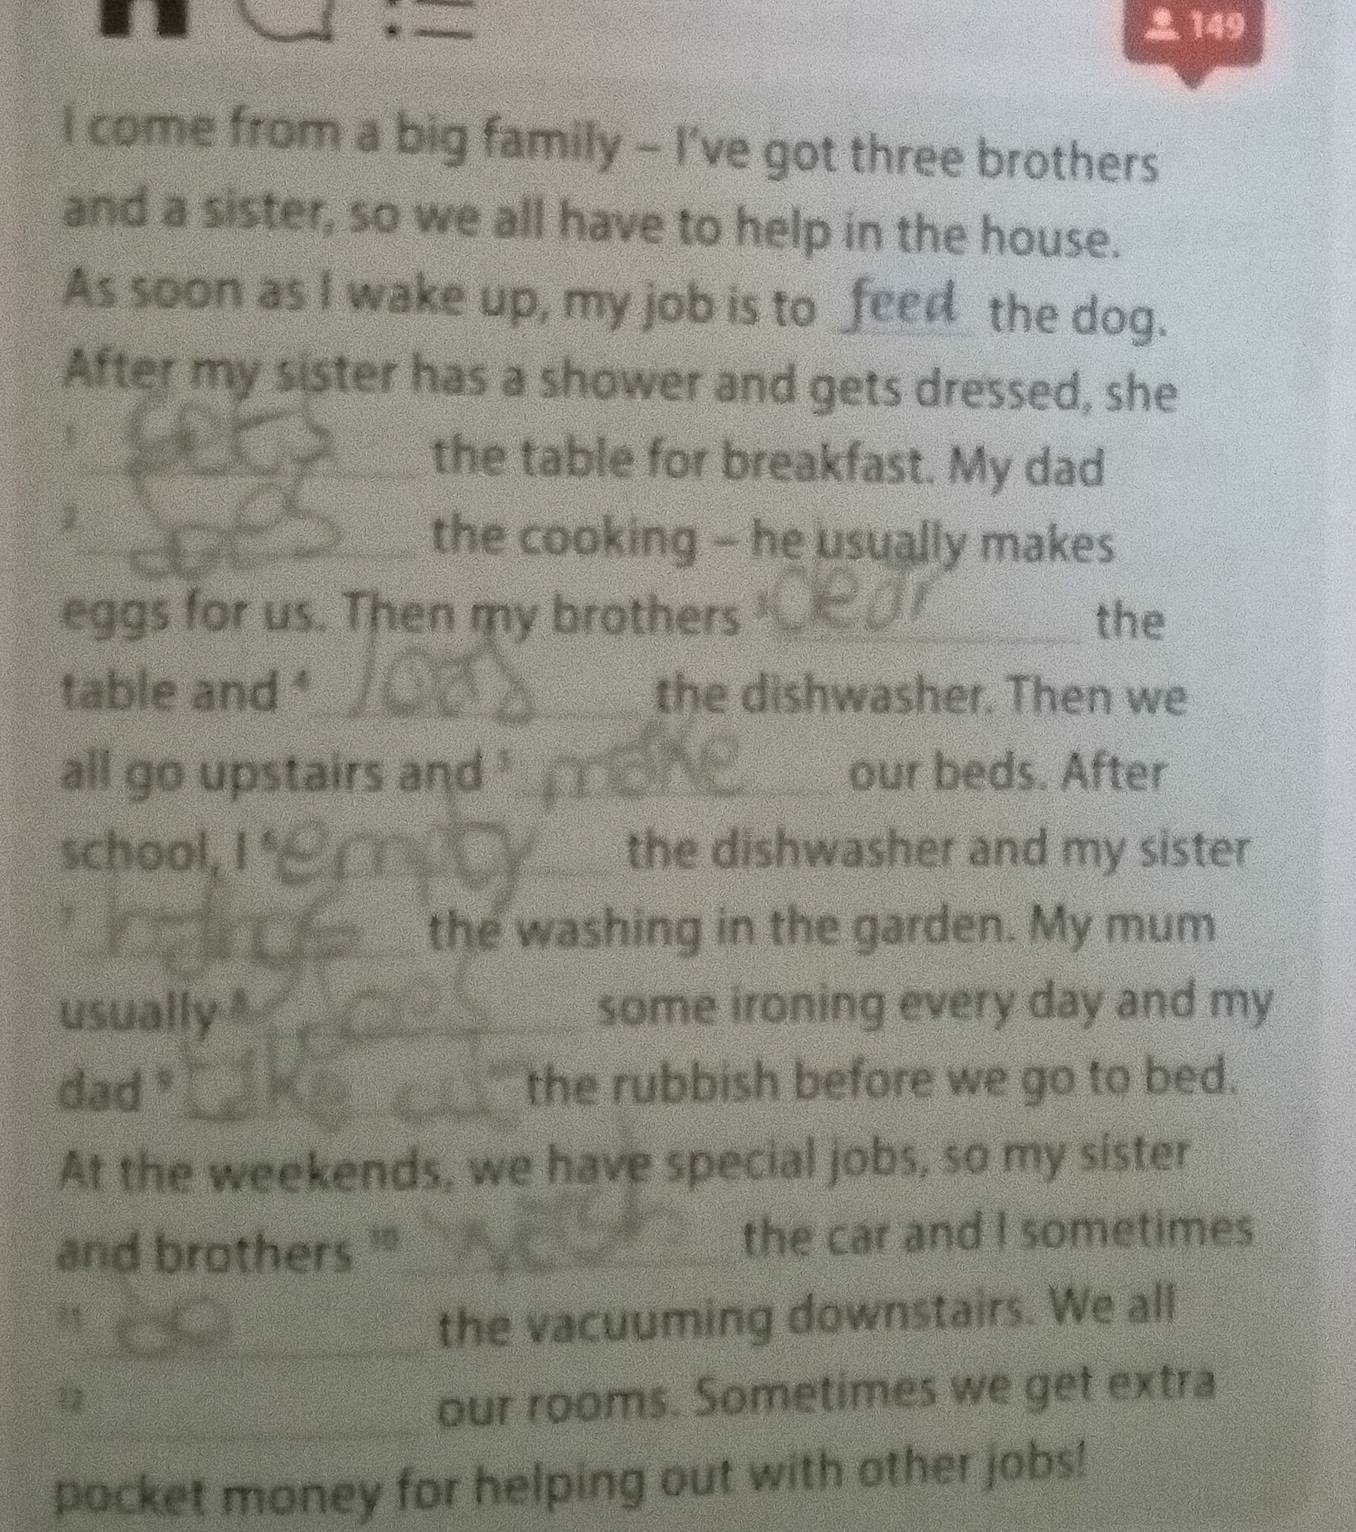 149
I come from a big family – I've got three brothers
and a sister, so we all have to help in the house.
As soon as I wake up, my job is to feed the dog.
After my sister has a shower and gets dressed, she
1 the table for breakfast. My dad
2 does the cooking – he usually makes
eggs for us. Then my brothers 3 clear the
table and 4 load the dishwasher. Then we
all go upstairs and 5 make our beds. After
school, I 6 empty the dishwasher and my sister
7 the washing in the garden. My mum
usually 8 some ironing every day and my
dad 9 take out the rubbish before we go to bed.
At the weekends, we have special jobs, so my sister
and brothers 10 the car and I sometimes
11 do the vacuuming downstairs. We all
12 our rooms. Sometimes we get extra
pocket money for helping out with other jobs!